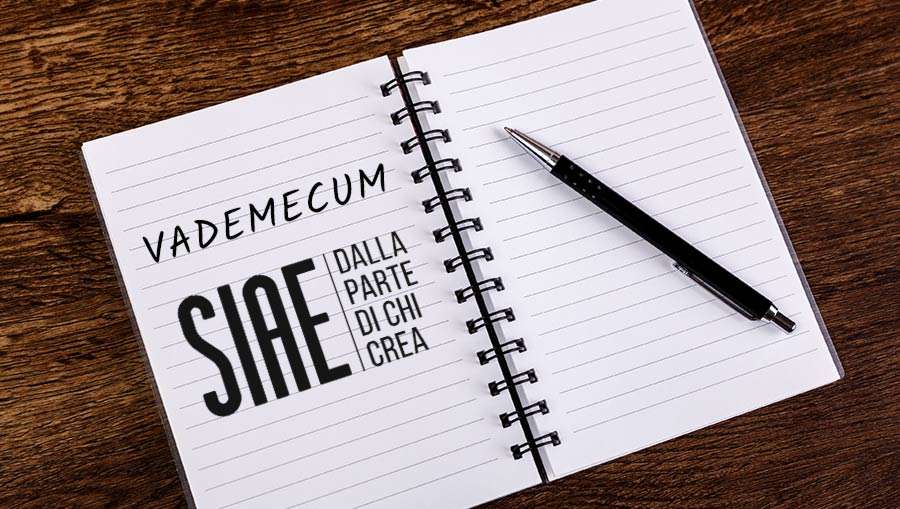 VADEMECUM
SIAE
DALLA
PARTE
DI CHI
CREA